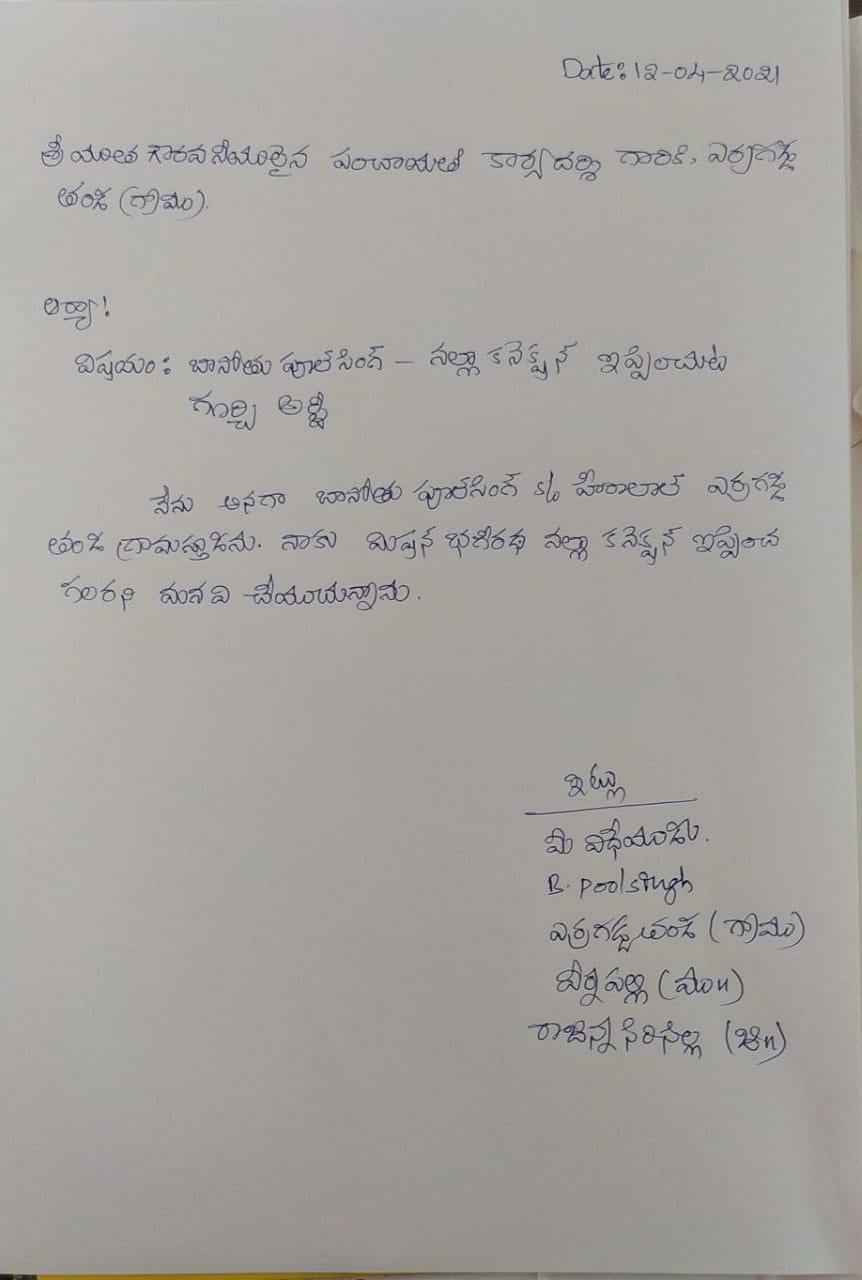 Date: 12-04-2021
శ్రీయుత గౌరవనీయులైన పంచాయతీ కార్యదర్శి గారికి, ఎర్రగడ్డ
తండ (గ్రామం).
అయ్యా!
విషయం: బానోతు పూల్‌సింగ్ – నల్లా కనెక్షన్ ఇప్పించుట
గూర్చి అర్జీ
నేను అనగా బానోతు పూల్‌సింగ్ s/o హీరాలాల్ ఎర్రగడ్డ
తండ గ్రామస్తుడిను. నాకు మిషన్ భగీరథ నల్లా కనెక్షన్ ఇప్పించ
గలరని మనవి చేయుచున్నాను.
ఇట్లు
మీ విధేయుడు.
B. poolsingh
ఎర్రగడ్డ తండ (గ్రామం)
వీర్నపల్లి (మం॥)
రాజన్న సిరిసిల్ల (జి॥)